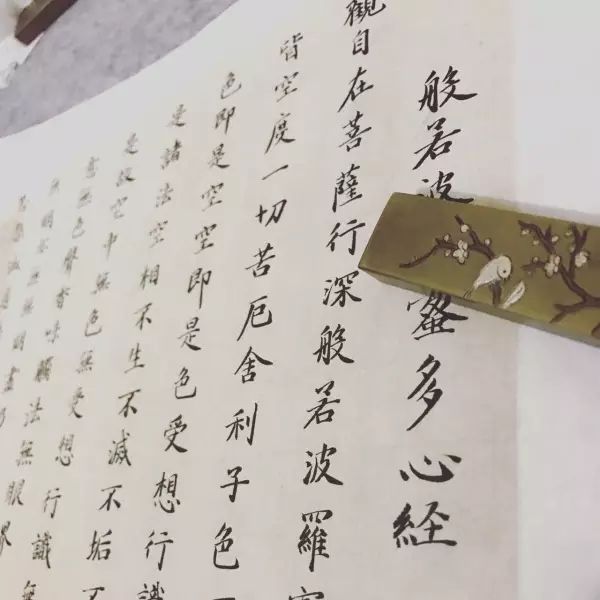 般若波蜜多心経
觀自在菩薩行深般若波羅
皆空度一切苦厄舍利子色
色即是空空即是色受想行識
是諸法空相不生不滅不垢不
是故空中無色無受想行識無
意無色聲香味觸法無眼界
無明亦無無明盡乃